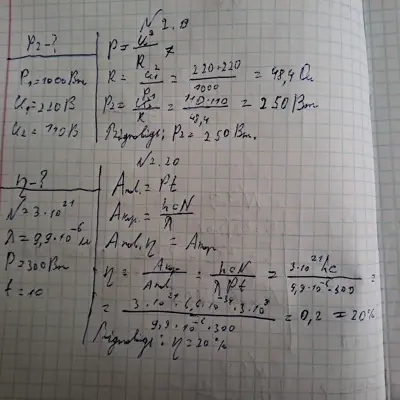 № 2.19
P₂-?
P₁=1000Вт
U₁=220В
U₂=110В
P=U²/R
R=U₁²/P₁=220·220/1000=48,4 Ом
P₂=U₂²/R=110·110/48,4=250Вт
Відповідь: P₂=250Вт.
№2.20
η-?
N=3·10²¹
λ=9,9·10⁻⁶м
P=300Вт
t=1с
Aпов.=Pt
Aкор=hcN/λ
Aпов.η=Aкор
η=Aкор/Aпов.=hcN/λPt=3·10²¹hc/9,9·10⁻⁶·300=
=3·10²¹·6,6·10⁻³⁴·3·10⁸/9,9·10⁻⁶·300=0,2=20%
Відповідь: η=20%